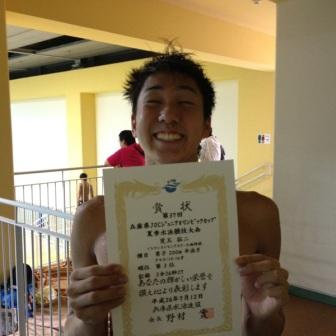 賞状
第37回
兵庫県JOCジュニアオリンピックカップ
夏季水泳競技大会
種目 男子 200m 平泳ぎ
順位 第3位
記録 2分26秒27
あなたの輝かしい栄誉を
讃えにより表彰します
平成26年7月12日
兵庫県水泳連盟
会長 野村